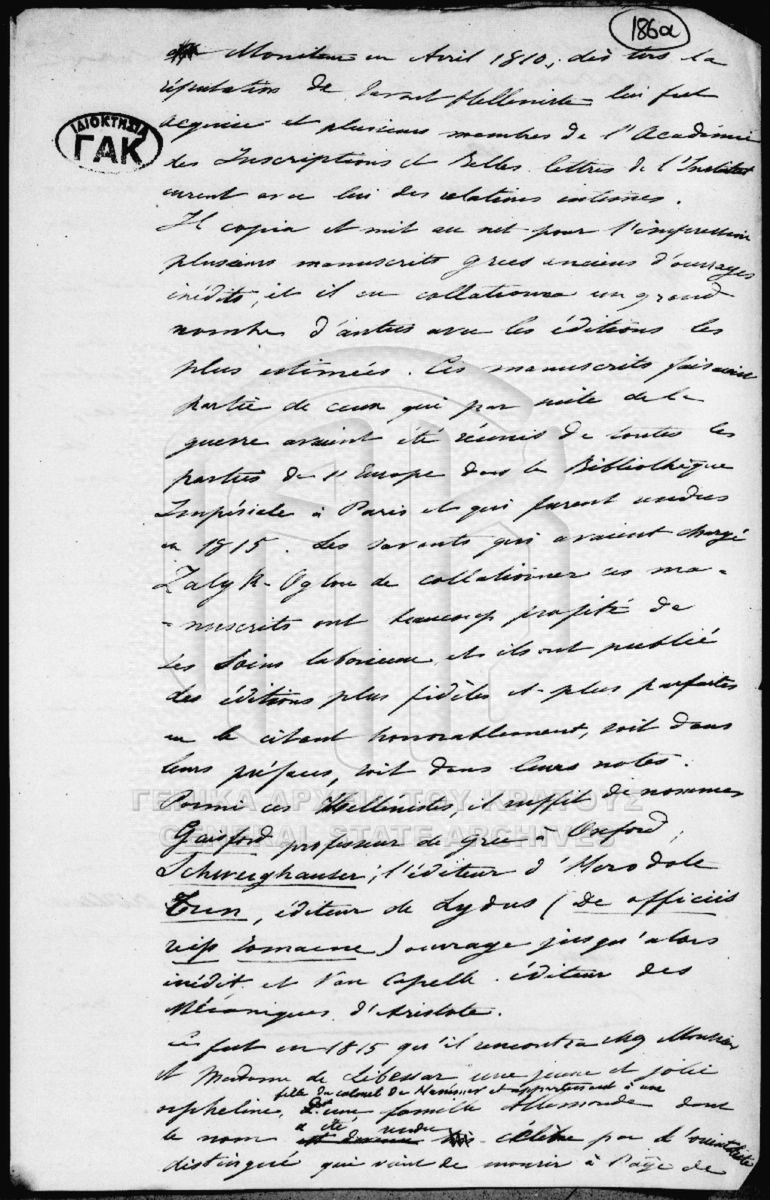 186α
ΙΔΙΟΚΤΗΣΙΑ
ΓΑΚ
Moniteur en Avril 1810, dès lors la
réputation de savant Helleniste lui fut
acquise et plusieurs membres de l'Académie
des Inscriptions et Belles lettres de l'Institut
eurent avec lui des relations intimes.
Il copia et mit au net pour l'impression
plusieurs manuscrits grecs anciens d'ouvrages
inédits, et il en collationna un grand
nombre d'autres avec les éditions les
plus estimées. Ces manuscrits faisaient
partie de ceux qui par suite de la
guerre avaient été réunis de toutes les
parties de l'Europe dans la Bibliothèque
Impériale à Paris et qui furent rendus
en 1815. Les savants qui avaient chargé
Zalyk-Oglou de collationner ces ma-
-nuscrits ont beaucoup profité de
ses soins laborieux et ils ont publié
des éditions plus fidèles et plus parfaites
en le citant honorablement, soit dans
leurs préfaces, soit dans leurs notes.
ΓΕΝΙΚΑ ΑΡΧΕΙΑ ΤΟΥ ΚΡΑΤΟΥΣ
Parmi ces Hellenistes, il suffit de nommer
GENERAL STATE ARCHIVES
Gaisford professeur de grec à Oxford,
Schweighauser, l'éditeur d'Herodote
éditeur de Lydus (De officiis
reip romaene) ouvrage jusqu'alors
inédit et Van Capelle éditeur des
Mécaniques d'Aristote.
Ce fut en 1815 qu'il rencontra chez Monsieur
et Madame de une jeune et jolie
fille du colonel de et appartenant à une
orpheline, D'une famille Allemande dont
a été rendu
le nom célèbre par l'orientaliste
distingué qui vient de mourir à de